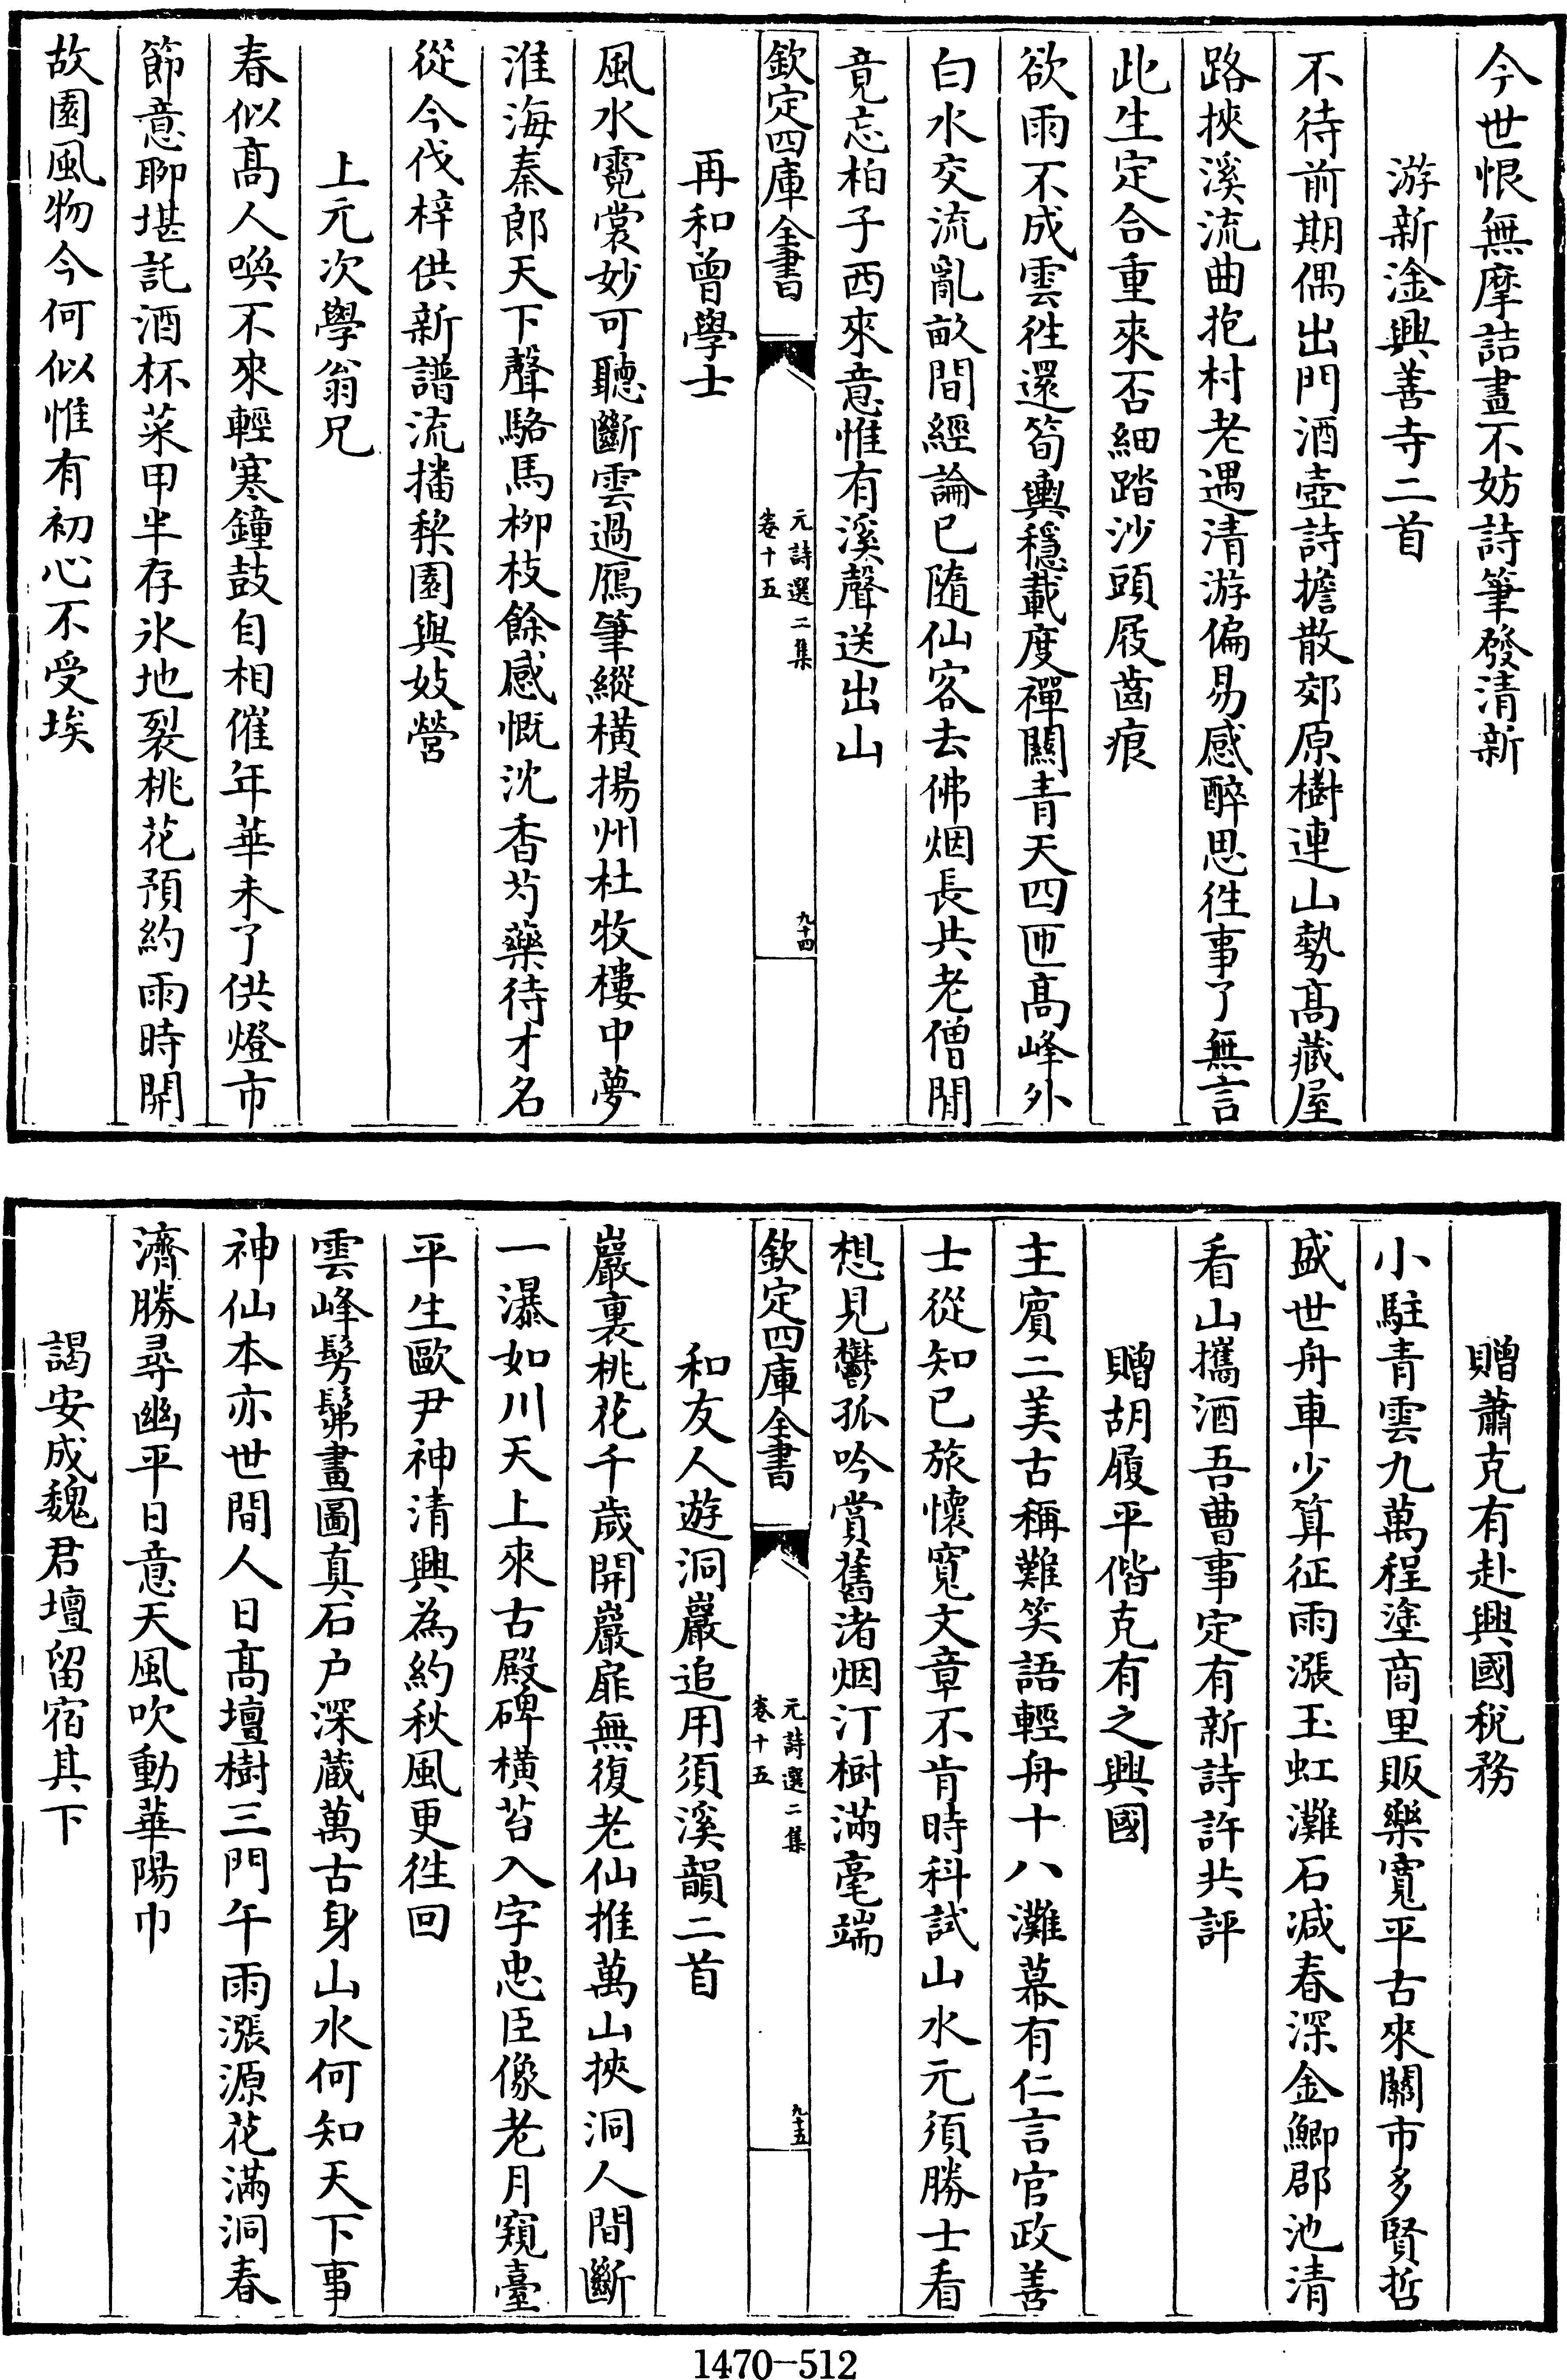 今世恨無摩詰畫不妨詩筆發清新
游新淦興善寺二首
不待前期偶出門酒壺詩擔散郊原樹連山勢髙藏屋
路挾溪流曲抱村老遇清游偏易感醉思徃事了無言
此生定合重來否細踏沙頭屐齒痕
欲雨不成雲徃還筍輿穩載度禪關青天四匝髙峰外
白水交流亂畝間經論已隨仙客去佛烟長共老僧閒
竟忘柏子西來意惟有溪聲送出山
欽定四庫全書
元詩選二集
卷十五
九十四
再和曾學士
風水霓裳妙可聽斷雲過鴈筆縱橫揚州杜牧樓中夢
淮海秦郎天下聲駱馬柳枝餘感慨沈香芍藥待才名
從今伐梓供新譜流播棃園與妓營
上元次學翁兄
春似髙人喚不來輕寒鐘鼓自相催年華未了供燈市
節意聊堪託酒杯菜甲半存氷地裂桃花預約雨時開
故園風物今何似惟有初心不受埃
贈蕭克有赴興國稅務
小駐青雲九萬程塗商里販樂寬平古來關市多賢哲
盛世舟車少算征雨漲玉虹灘石减春深金鯽郡池清
看山攜酒吾曹事定有新詩許共評
贈胡履平偕克有之興國
主賓二美古稱難笑語輕舟十八灘幕有仁言官政善
士從知已旅懷寬文章不肯時科試山水元須勝士看
想見鬱孤吟賞舊渚烟汀樹滿毫端
欽定四庫全書
元詩選二集
卷十五
九十五
和友人遊洞巖追用須溪韻二首
巖裏桃花千歲開巖扉無復老仙推萬山挾洞人間斷
一瀑如川天上來古殿碑橫苔入字忠臣像老月窺臺
平生歐尹神清興為約秋風更徃回
雲峰髣髴畫圖真石户深藏萬古身山水何知天下事
神仙本亦世間人日髙壇樹三門午雨漲源花滿洞春
濟勝尋幽平日意天風吹動華陽巾
謁安成魏君壇留宿其下
1470-512